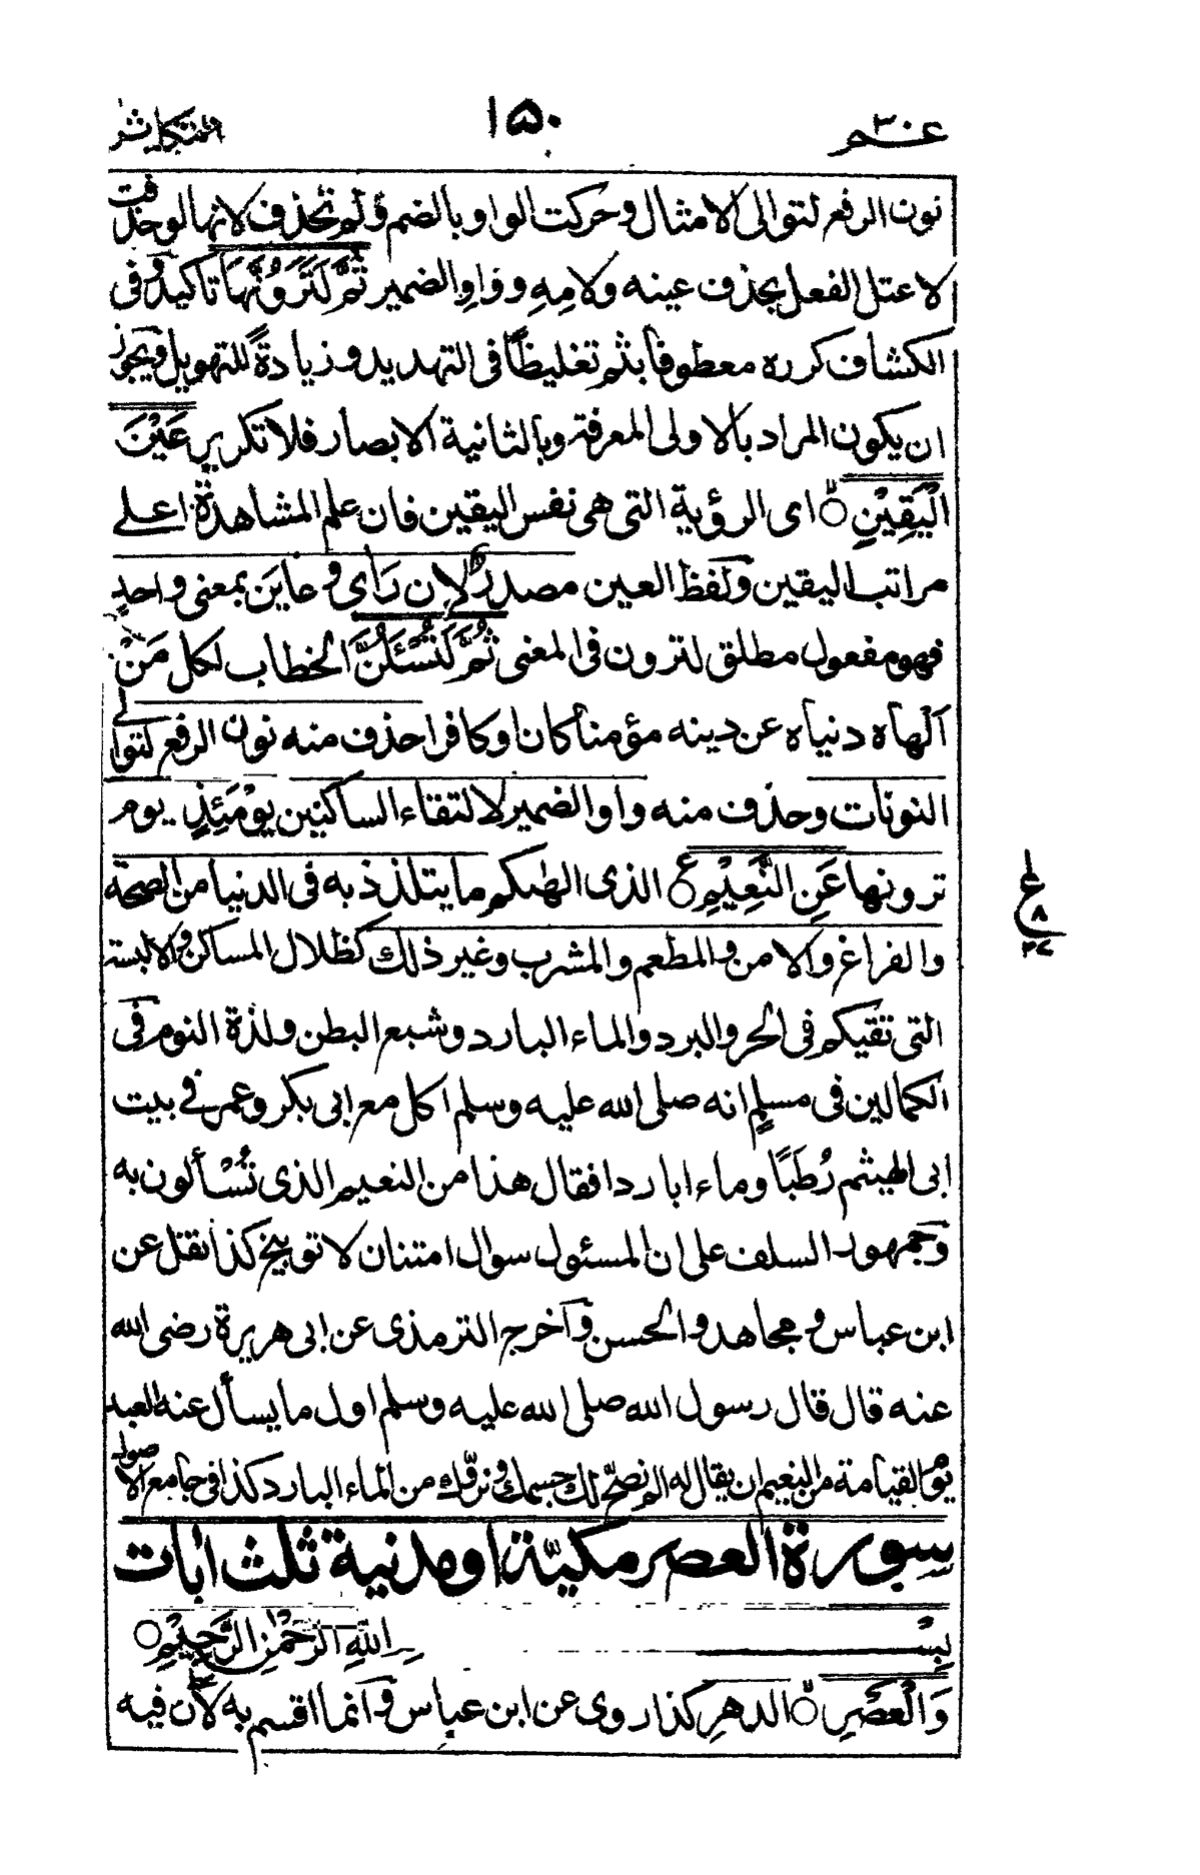 عم ٣٠
١٥٠
التكاثر
نون الرفع لتوالى الامثال وحركت الواو بالضم ولم تحذف لانها لو حذفت
لاعتل الفعل بحذف عينه ولامِهِ وواوِ الضمير ثُمَّ لَتَرَوُنَّهَا تاكيد وفى
الكشاف كرره معطوفا بثم تغليظًا فى التهديد وزيادةً للتهويل ويجوز
ان يكون المراد بالاولى المعرفة وبالثانية الابصار فلا تكرير عَيْنَ
الْيَقِيْنِ ۝ اى الرؤية التى هى نفس اليقين فان علم المشاهدة اعلے
مراتب اليقين ولفظ العين مصدر لان رَاٰى و عايَن بمعنى واحدٍ
فهو مفعول مطلق لترون فى المعنى ثُمَّ لَتُسْئَلُنَّ الخطاب لكل مَنْ
الهاه دنياه عن دينه مؤمنا كان او كافرا حذف منه نون الرفع لتوالے
النونات وحذف منه واو الضمير لالتقاء الساكنين يَوْمَئِذٍ يوم
ترونها عَنِ النَّعِيْمِ ۝ الذى الهٰىكم ما يتلذذ به فى الدنيا من الصحة
والفراغ والامن والمطعم والمشرب وغير ذلك كظلال المساكن والالبسة
التى تقيكم فى الحر والبرد والماء البارد وشبع البطن ولذة النوم فى
الكمالين فى مسلم انه صلى الله عليه وسلم اكل مع ابى بكر وعمر فے بيت
ابى الهيثم رُطَبًا وماء ابار دا فقال هذا من النعيم الذى تُسْألون به
وجمهور السلف على ان المسئول سوال امتنان لا توبيخ كذا نقل عن
ابن عباس و مجاهد والحسن واخرج الترمذى عن ابى هريرة رضى الله
عنه قال قال رسول الله صلى الله عليه وسلم اول ما يسأل عنه العبد
يوم القيامة من النعيم ان يقال له الم نصحّ لك جسمك ونروّك من الماء البارد كذا فى جامع الاصول
سورة العصر مكيّة او مدنية ثلث ايات
بِسْـــمِ اللّٰهِ الرَّحْمٰنِ الرَّحِيْمِ ۝
وَالْعَصْرِ ۝ الدهرِ كذا روى عن ابن عباس وانما اقسم به لان فيه
ع
٨
٢٧